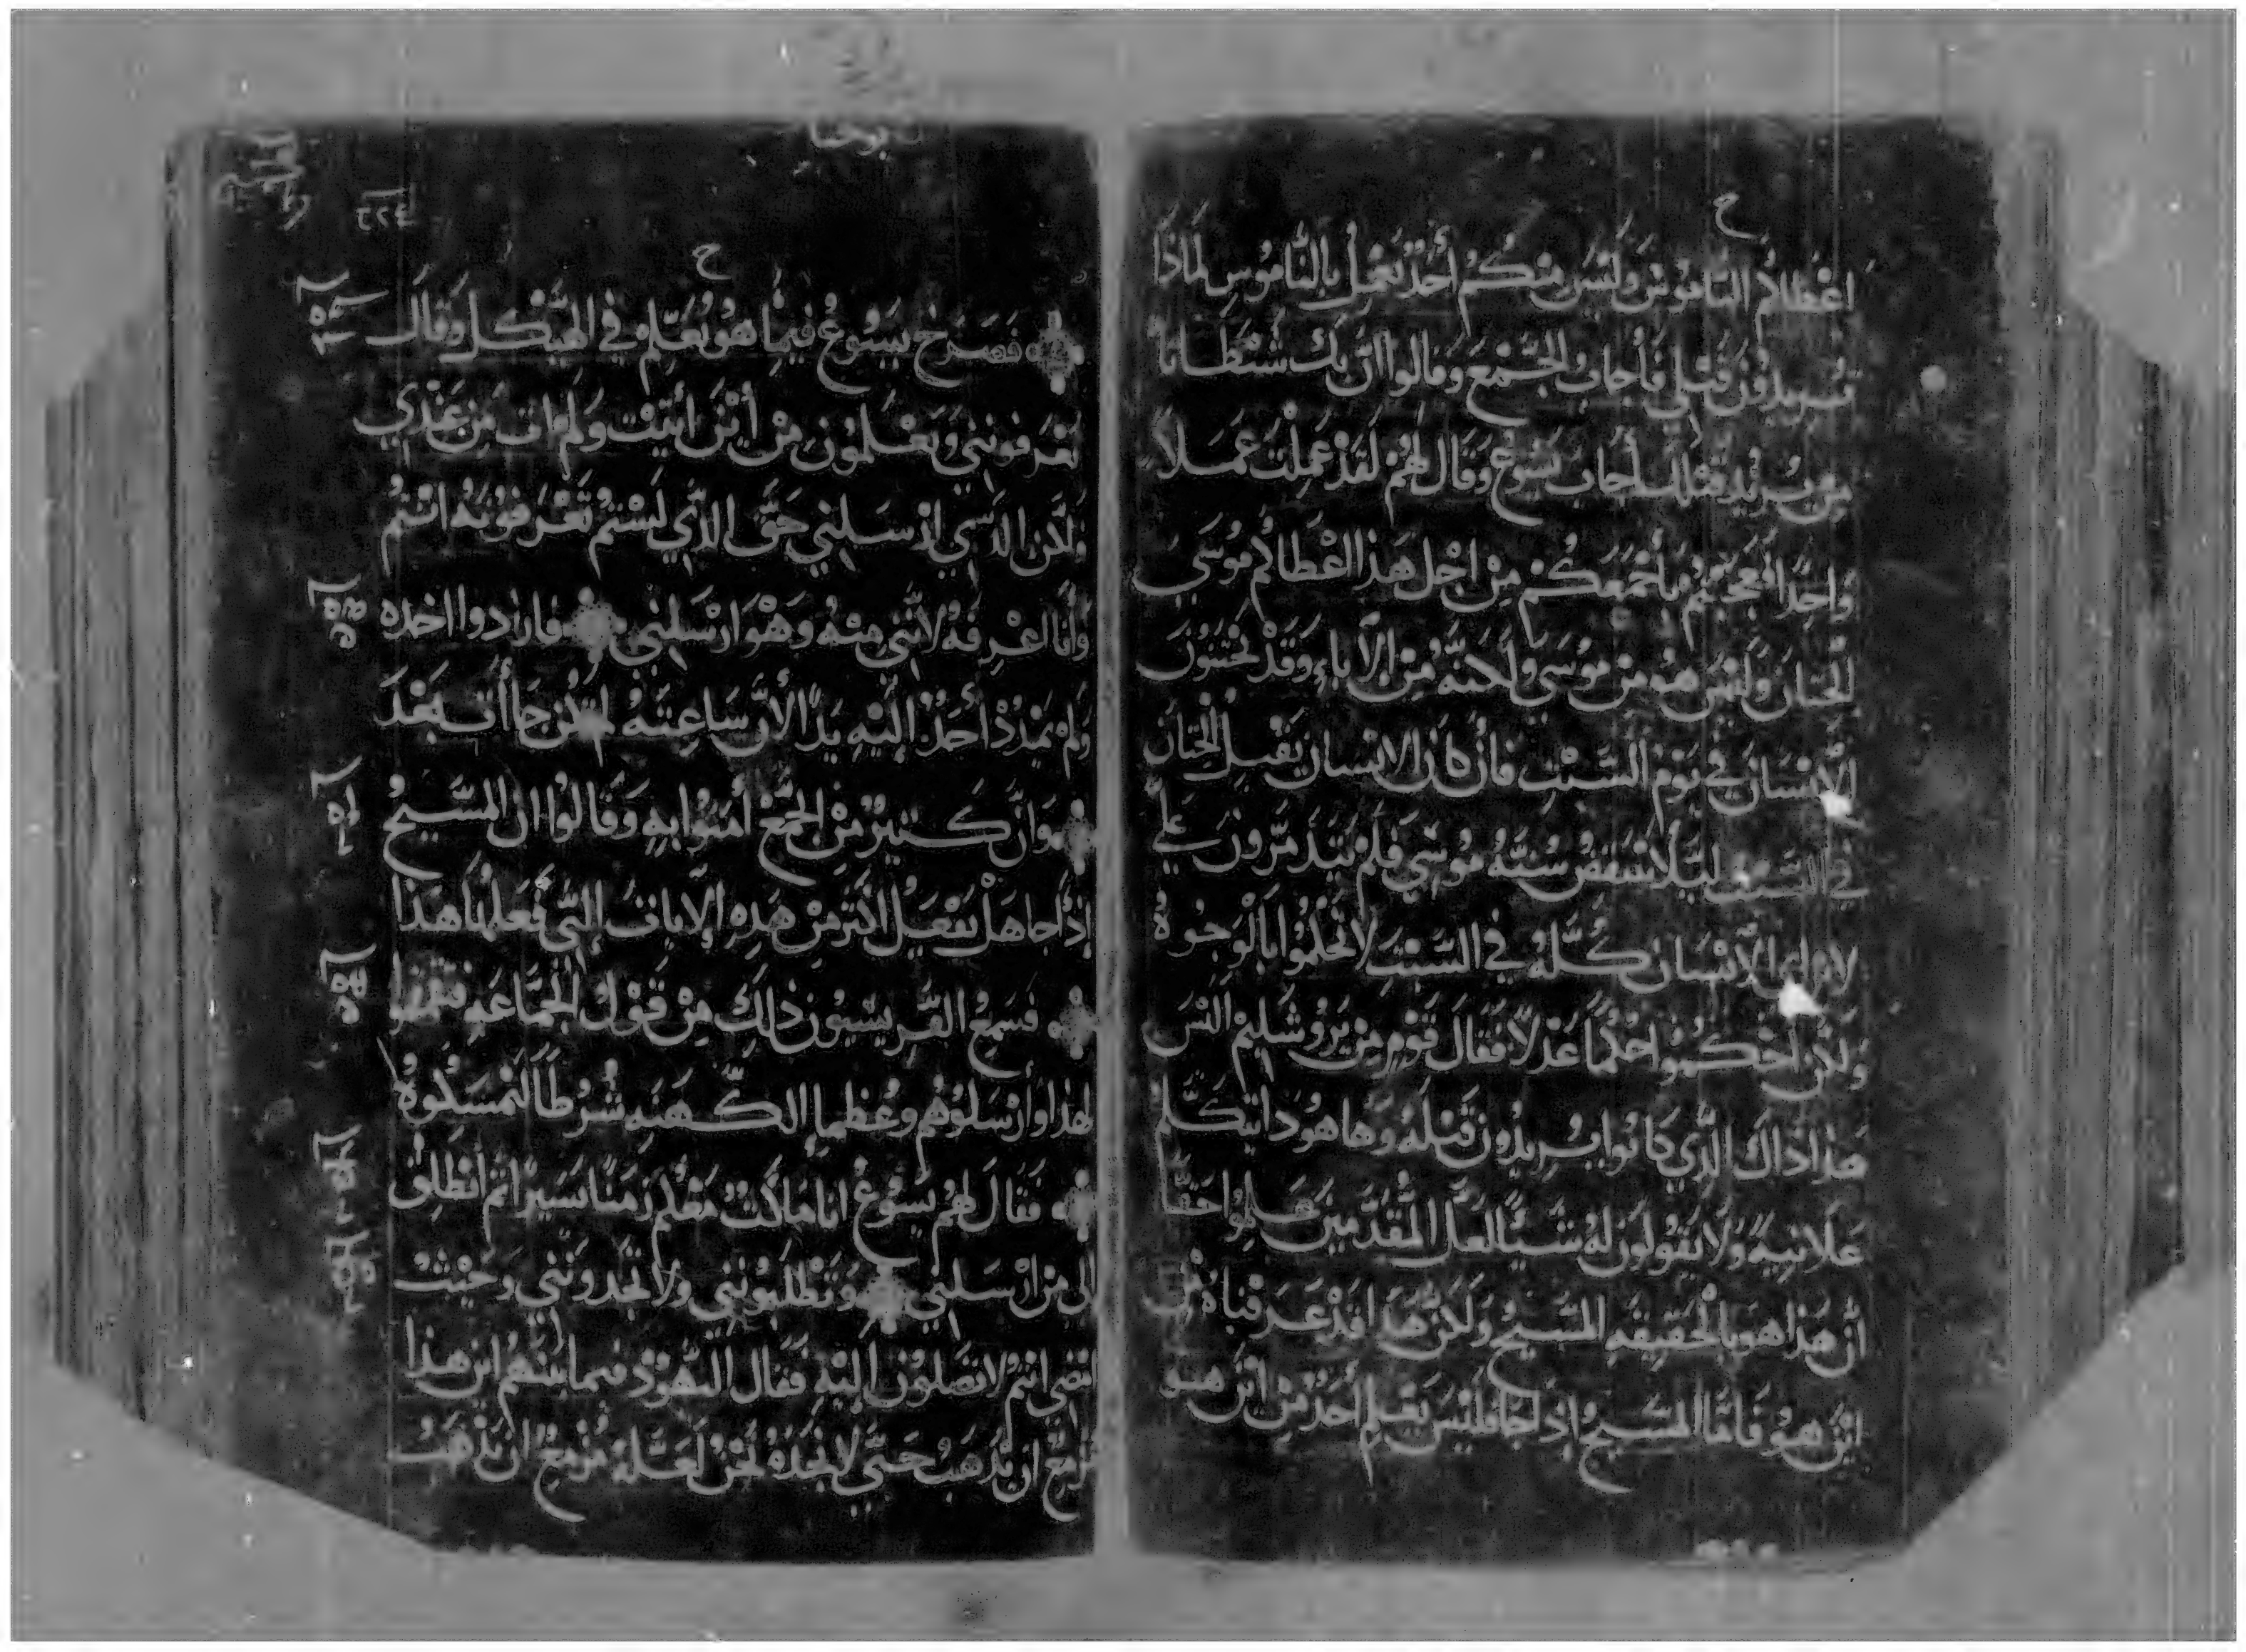 ح
اعْطَاكُم النَامُوسَ وَلَيْسَ مِنْكُم أَحَدٌ يَعْمَلُ بِالنَّامُوسِ لِمَاذَا
تُريدُونَ قَتْلِي فَأَجَابَ الجَمْعَ وَقَالوا ان بِكَ شَيْطَانًا
من يُريد قتلك أجابَ يَسُوعُ وَقَال لَهُمْ لَقَدْ عَمِلْتُ عَمَلاً
وَاحِدًا فَعَجِبْتُم بِأَجْمَعِكُمْ مِنْ اجْلِ هَذا اعْطَاكُم مُوسَى
الخِتَانَ وَلَيْسَ هُو مِنْ مُوسَي وَلَكِنَّهُ مِن الآبَاءِ وَقَدْ تَخْتِنُونَ
الإنْسَانَ فِي يَوْمِ السَّبْتِ فَان كَانَ الانسان يَقْبَل الخِتَانَ
فِي السَّبْتِ لِيَلَّا تنْتَقِضُ سُنَّةُ مُوسَي فَلِمَ تَتَذَمَّرُونَ عَلَيَّ
لابراي الانْسَان كُلَّهُ فِي السَّبْتِ لا تَحْكُمُوا بِالْوُجُوهُ
وَلَكِن احْكُمُوا حُكْمًا عَدْلاً فَقَالَ قَوْمٍ مِنْ يَرُوشَلِيمْ الَيْسَ
هَذَا ذَاكَ الَّذِي كَانُوا يُريدُونَ قَتْلَهُ وَهَا هُوَ ذَا يَتكَلَّم
عَلانِيَةً وَلا يَقُولُونَ لَهُ شَيْئًا لَعَلَّ المُقَدَّمِينَ عَلِمُوا حَقًّا
أَن هَذَا هو بِالحَقِيقَةِ المَسِيحُ وَلَكِنَّ هَذَا قَدْ عَرَفْنَاهُ مِن
ايْنَ هُوَ فَامَّا المَسِيحُ إِذا جَا فَلَيْسَ يَعْلَم أَحَدٌ مِنْ ايْنَ هو
يوحنا
٢٢٤
ح
فَصَرَخَ يَسُوعُ فِيمَا هُوَ يُعَلِّم فِي الهَيْكل وَقَالَ
تَعْرِفونَنِي وَتَعْلَمُونَ مِنْ أَيْنَ أَتَيْتُ وَلَم ات مِن عِنْدِي
وَلَكِن الذي ارْسَلَنِي حَقٌّ الذي لَسْتُمْ تَعْرِفُونَهُ انْتُمْ
وَأَنَا اعْرِفهُ لأَنَّنِي مِنْهُ وَهْوَ ارْسَلَنِي فارَادوا اخذه
وَلَم يَمْدُدْ أَحَدٌ إليْهِ يَدًا لأَنَّ سَاعَتَهُ لم تكُن جَاأَت بَعْدَ
وَانَّ كَثِيرٌ مِنْ الجَمْعِ أَمَنُوا بِهِ وَقَالُوا ان المَسِيحُ
إِذَا جا هَلْ يَفْعَلُ اكْثَرَ مِنْ هَذِهِ الآيَاتِ التِّي فَعَلَهَا هَذا
فَسَمِعَ الفَّرِيسِيُّونَ ذلِكَ مِنْ قَوْل الجَمَاعَهِ فيه
لهذا وَأَرْسَلوا هُم وَعُظما الكَّهَنَةِ شُرَطًا لِيَمْسِكُوهُ
فَقَالَ لَهُمْ يَسُوعُ انا مَاكثٌ مَعَكُم زَمَنًا يَسِيرًا ثم أَنْطَلِقُ
الَى مَنْ ارْسَلَنِي وَتَطْلُبُونَنِي ولا تَجِدُونَنِي وَحَيْثُ
امضي انتم لا تصلون إِليْهِ فَقَال اليَّهُودُ فيما بينهُم اين هذا
مُزمِعٌ ان يَذهَب حَتّي لا نَجِدُهُ نَحْنُ لَعَلَّهُ مُزْمِعٌ ان يَذْهَبُ